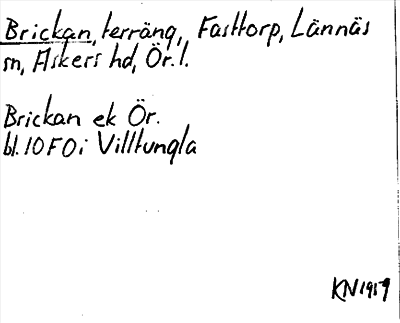 Brickan, terräng, Fasttorp, Lännäs
sn, Askers hd, Ör. l.
Brickan ek Ör.
bl. 10 F 0 i Villtungla
KN 1959